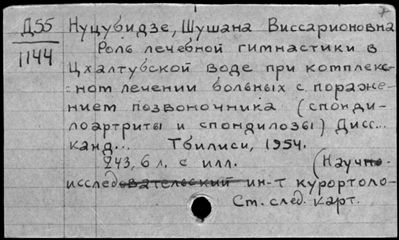 Д55
1144
Нуцубидзе, Шушана Виссарионовна
Роль лечебной гимнастики в
Цхалтубской воде при комплекс-
ном лечении больных с пораже-
нием позвоночника (спонди-
лоартриты и спондилозы) Дисс...
канд... Тбилиси, 1954.
243, 6 л. с илл. (Научно-
исследовательский ин-т курортоло-
См. след. карт.